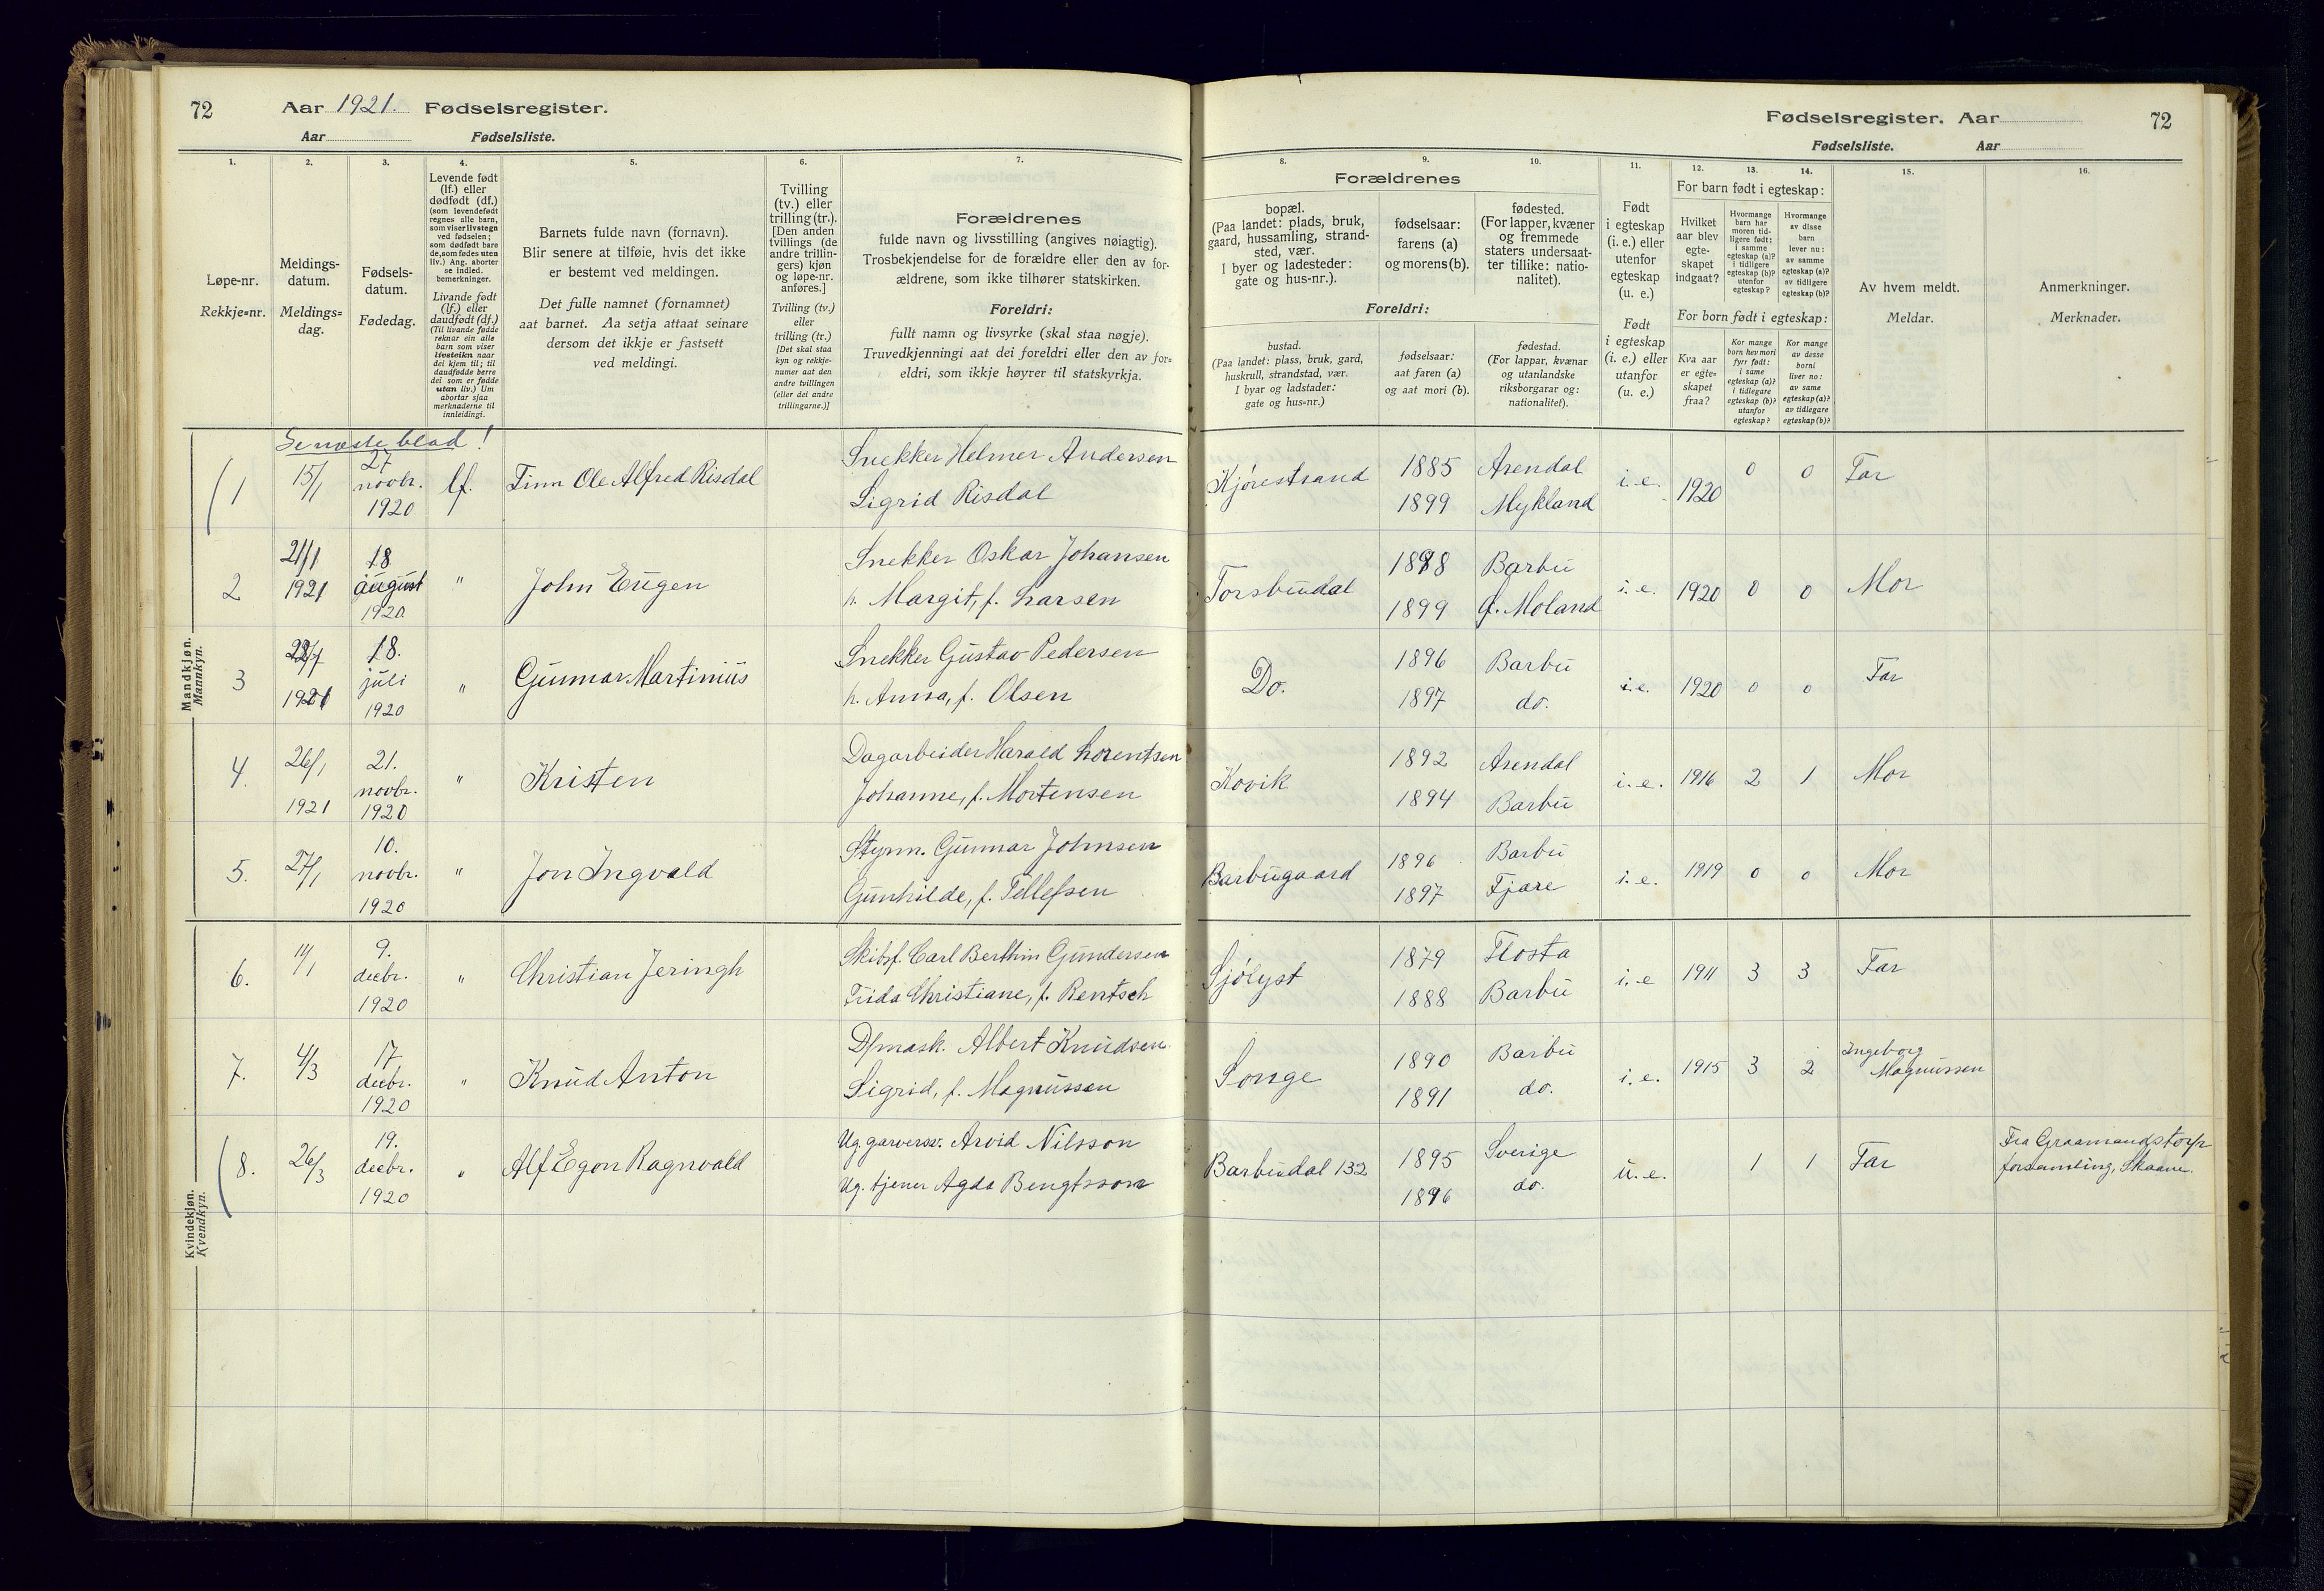 72 Aar 1921. Fødselsregister.
Aar Fødselsliste.
1. 2. 3. 4. 5. 6. 7.
Løpe-nr.
Rekkje=nr.
Meldings-
datum.
Meldings=
dag.
Fødsels-
datum.
Fødedag.
Levende født
(lf.) eller
dødfødt (df.)
(som levendefødt
regnes alle barn,
som viser livstegn
ved fødselen;
som dødfødt bare
de, som fødes uten
liv.) Ang. aborter
se indled.
bemerkninger.
Livande født
(lf.) eller
daudfødt (df.)
(Til livande fødde
reknar ein alle
barn som viser
livsteikn naar
dei kjem til; til
daudfødde berre
dei som er fødde
utan liv.) Um
abortar sjaa
merknaderne til
innleidingi.
Barnets fulde navn (fornavn).
Blir senere at tilføie, hvis det ikke
er bestemt ved meldingen.
Det fulle namnet (fornamnet)
aat barnet. Aa setja attaat seinare
dersom det ikkje er fastsett
ved meldingi.
Tvilling
(tv.) eller
trilling (tr.).
[Den anden
tvillings (de
andre trillin-
gers) kjøn
og løpe-nr.
anføres.]
Tvilling (tv.)
eller
trilling (tr.)
[Det skal staa
kyn og rekkje-
numer aat den
andre tvillingen
(eller dei andre
trillingarne.)]
Forældrenes
fulde navn og livsstilling (angives nøiagtig).
Trosbekjendelse for de forældre eller den av for-
ældrene, som ikke tilhører statskirken.
Foreldri:
fullt namn og livsyrke (skal staa nøgje).
Truvedkjenningi aat dei foreldri eller den av for=
eldri, som ikkje høyrer til statskyrkja.
Mandkjøn.
Mannkyn.
Se næste blad!
1 15/1 27 novbr. 1920 lf. Finn Ole Alfred Risdal Snekker Helmer Andersen
Sigrid Risdal
2 21/1 1921 18 august 1920. " John Eugen Snekker Oskar Johansen
h. Margit, f. Larsen
3 1921 18. juli 1920 " Gunnar Martinius Snekker Gustav Pedersen
h. Anna, f. Olsen
4. 26/1 1921 21. novbr. 1920 " Kristen Dagarbeider Harald Lorentsen
Johanne, f. Mortensen
5. 27/1 10. novbr. 1920 " Jon Ingvald Styrm. Gunnar Johnsen
Gunhilde, f. Tellefsen
6. 11/1 9. decbr. 1920 " Christian Jeringh Skibsf. Carl Berthin Gundersen
Frida Christiane, f. Rentsch
7. 4/3 17 decbr. 1920 " Knud Anton D/mask. Albert Knudsen
Sigrid, f. Magnussen
8. 26/3 19. decbr. 1920 " Alf Egon Ragnvald Ug. garversv. Arvid Nilsson
Ug. tjener Agda Bengtsson
Kvindekjøn.
Kvendkyn.
Fødselsregister. Aar 72
Fødselsliste. Aar
8. 9. 10. 11. 12. 13. 14. 15. 16.
Forældrenes
bopæl.
(Paa landet: plads, bruk,
gaard, hussamling, strand-
sted, vær.
I byer og ladesteder:
gate og hus-nr.).
fødselsaar:
farens (a)
og morens (b).
fødested.
(For lapper, kvæner
og fremmede
staters undersaat-
ter tillike: natio-
nalitet).
Foreldri:
bustad.
(Paa landet: plass, bruk, gard,
huskrull, strandstad, vær.
I byar og ladstader:
gate og hus=nr.)
fødselsaar:
aat faren (a)
og aat mori (b).
fødestad.
(For lappar, kvænar
og utanlandske
riksborgarar og:
nationalitet).
Født
i egteskap
(i. e.) eller
utenfor
egteskap
(u. e.)
Født
i egteskap
(i. e.) eller
utanfor
(u. e.)
For barn født i egteskap:
Hvilket
aar blev
egte-
skapet
indgaat?
Hvormange
barn har
moren tid-
ligere født:
i samme
egteskap (a)?
i tidligere
egteskap (b)?
utenfor
egteskap?
Hvormange
av disse
barn
lever nu:
av samme
egteskap (a)?
av tidligere
egteskap (b)?
For born født i egteskap:
Kva aar
er egte=
skapet
fraa?
Kor mange
born hev mori
fyrr født:
i same
egteskap (a)?
i tidlegare
egteskap (b)?
utanfor
egteskap?
Kor mange
av desse
borni
liver no:
av same
egteskap (a)?
av tidlegare
egteskap (b)?
Av hvem meldt.
Meldar.
Anmerkninger.
Merknader.
Kjørestrand 1885 Arendal i. e. 1920 0 0 Far
1899 Mykland
Torsbudal 1898 Barbu i. e. 1920 0 0 Mor
1899 Ø. Moland
Do. 1896 Barbu i. e. 1920 0 0 Far
1897 do.
Kovik 1892 Arendal i. e. 1916 2 1 Mor
1894 Barbu
Barbugaard 1896 Barbu i. e. 1919 0 0 Mor
1897 Fjære
Sjölyst 1879 Flosta i. e 1911 3 3 Far
1888 Barbu
Songe 1890 Barbu i. e. 1915 3 2 Ingeborg Magnussen
1891 do.
Barbudal 132 1895 Sverige u. e. 1 1 Far Fra Graamandstorp
1896 do. forsamling, Skaane.